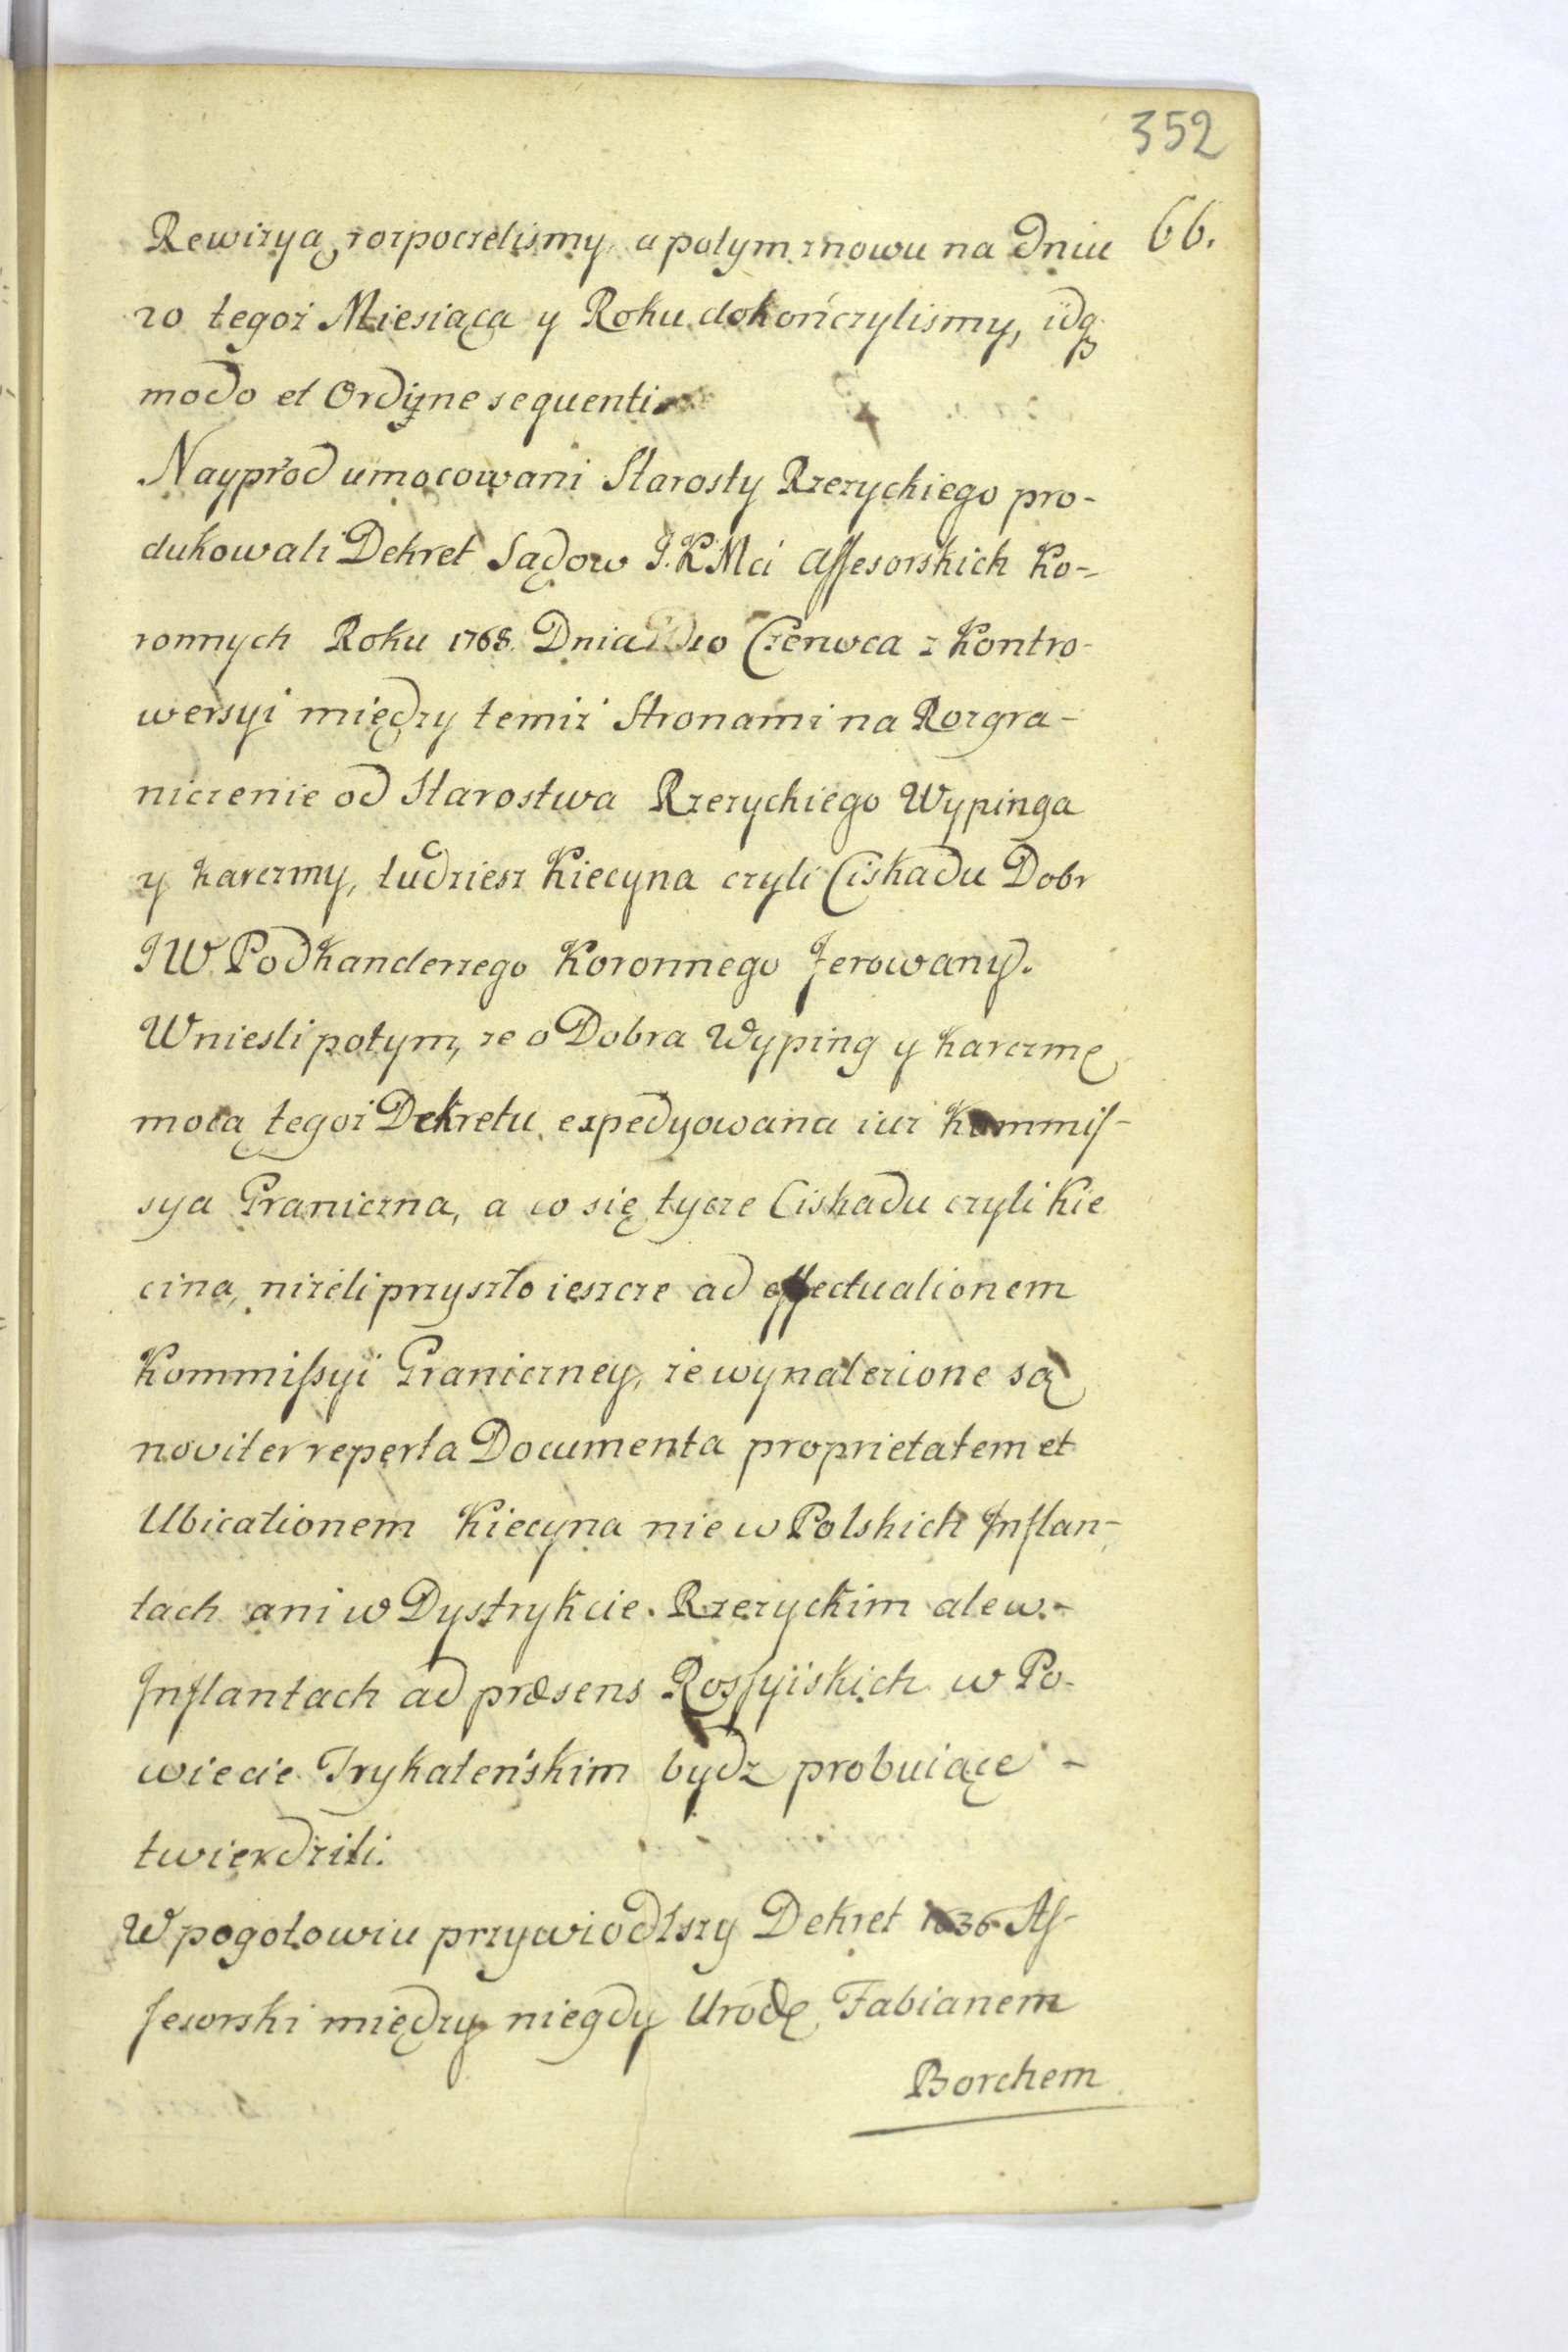 352
Rewizyą rozpoczelismy, a potym znowu na Dniu 66.
20 tegoż Miesiąca y Roku dokończylismy, idq
modo et Ordyne sequenti
Nayprzod umocowani Starosty Rzezyckiego pro-
dukowali Dekret Sądow J.K Mci Assesorskich Ko-
ronnych Roku 1768. Dnia 10 Czerwca z Kontro-
wersyi między temiż Stronami na Rozgra-
niczenie od Starostwa Rzezyckiego Wypinga
y karczmy, tudziesz Kiecyna czyli Ciskadu Dobr
JW Podkanclerzego Koronnego ferowany.
Wniesli potym, ze o Dobra Wyping y karczmę
mocą tegoż Dekretu expedyowana iuz Kommis-
sya Graniczna, a co się tycze Ciskadu czyli Kie
cina, niżeli przyszło ieszcze ad effectuationem
Kommissyi Graniczney, że wynalezione są
noviter reperta Documenta proprietatem et
Ubicationem Kiecyna nie w Polskich Inflan-
tach ani w Dystrykcie Rzezyckim ale w-
Inflantach ad præsens Rossyiskich w Po-
wiecie Trykateńskim bydz probuiące -
twierdzili.
W pogotowiu przywiodłszy Dekret 1636 As-
sesorski między niegdy Urodź Fabianem
Borchem